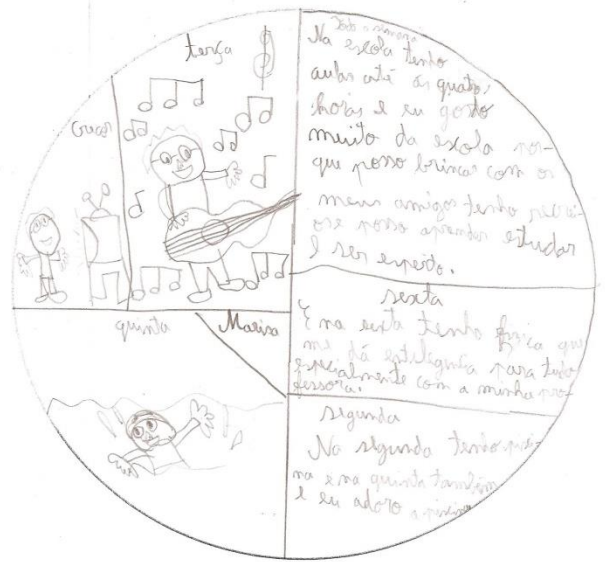 terça
Na escola tenho
aulas até ás quatro
horas e eu gosto
muito da escola por-
que posso brincar com os
meus amigos tenho recrei-
os e posso aprender estudar
E ser esperto.
quinta
Marisa
sexta
E na sexta tenho física que
me dá para tudo
especialmente com a minha pro-
fessora.
segunda
Na segunda tenho pisci-
na e na quinta também
e eu adoro a piscina